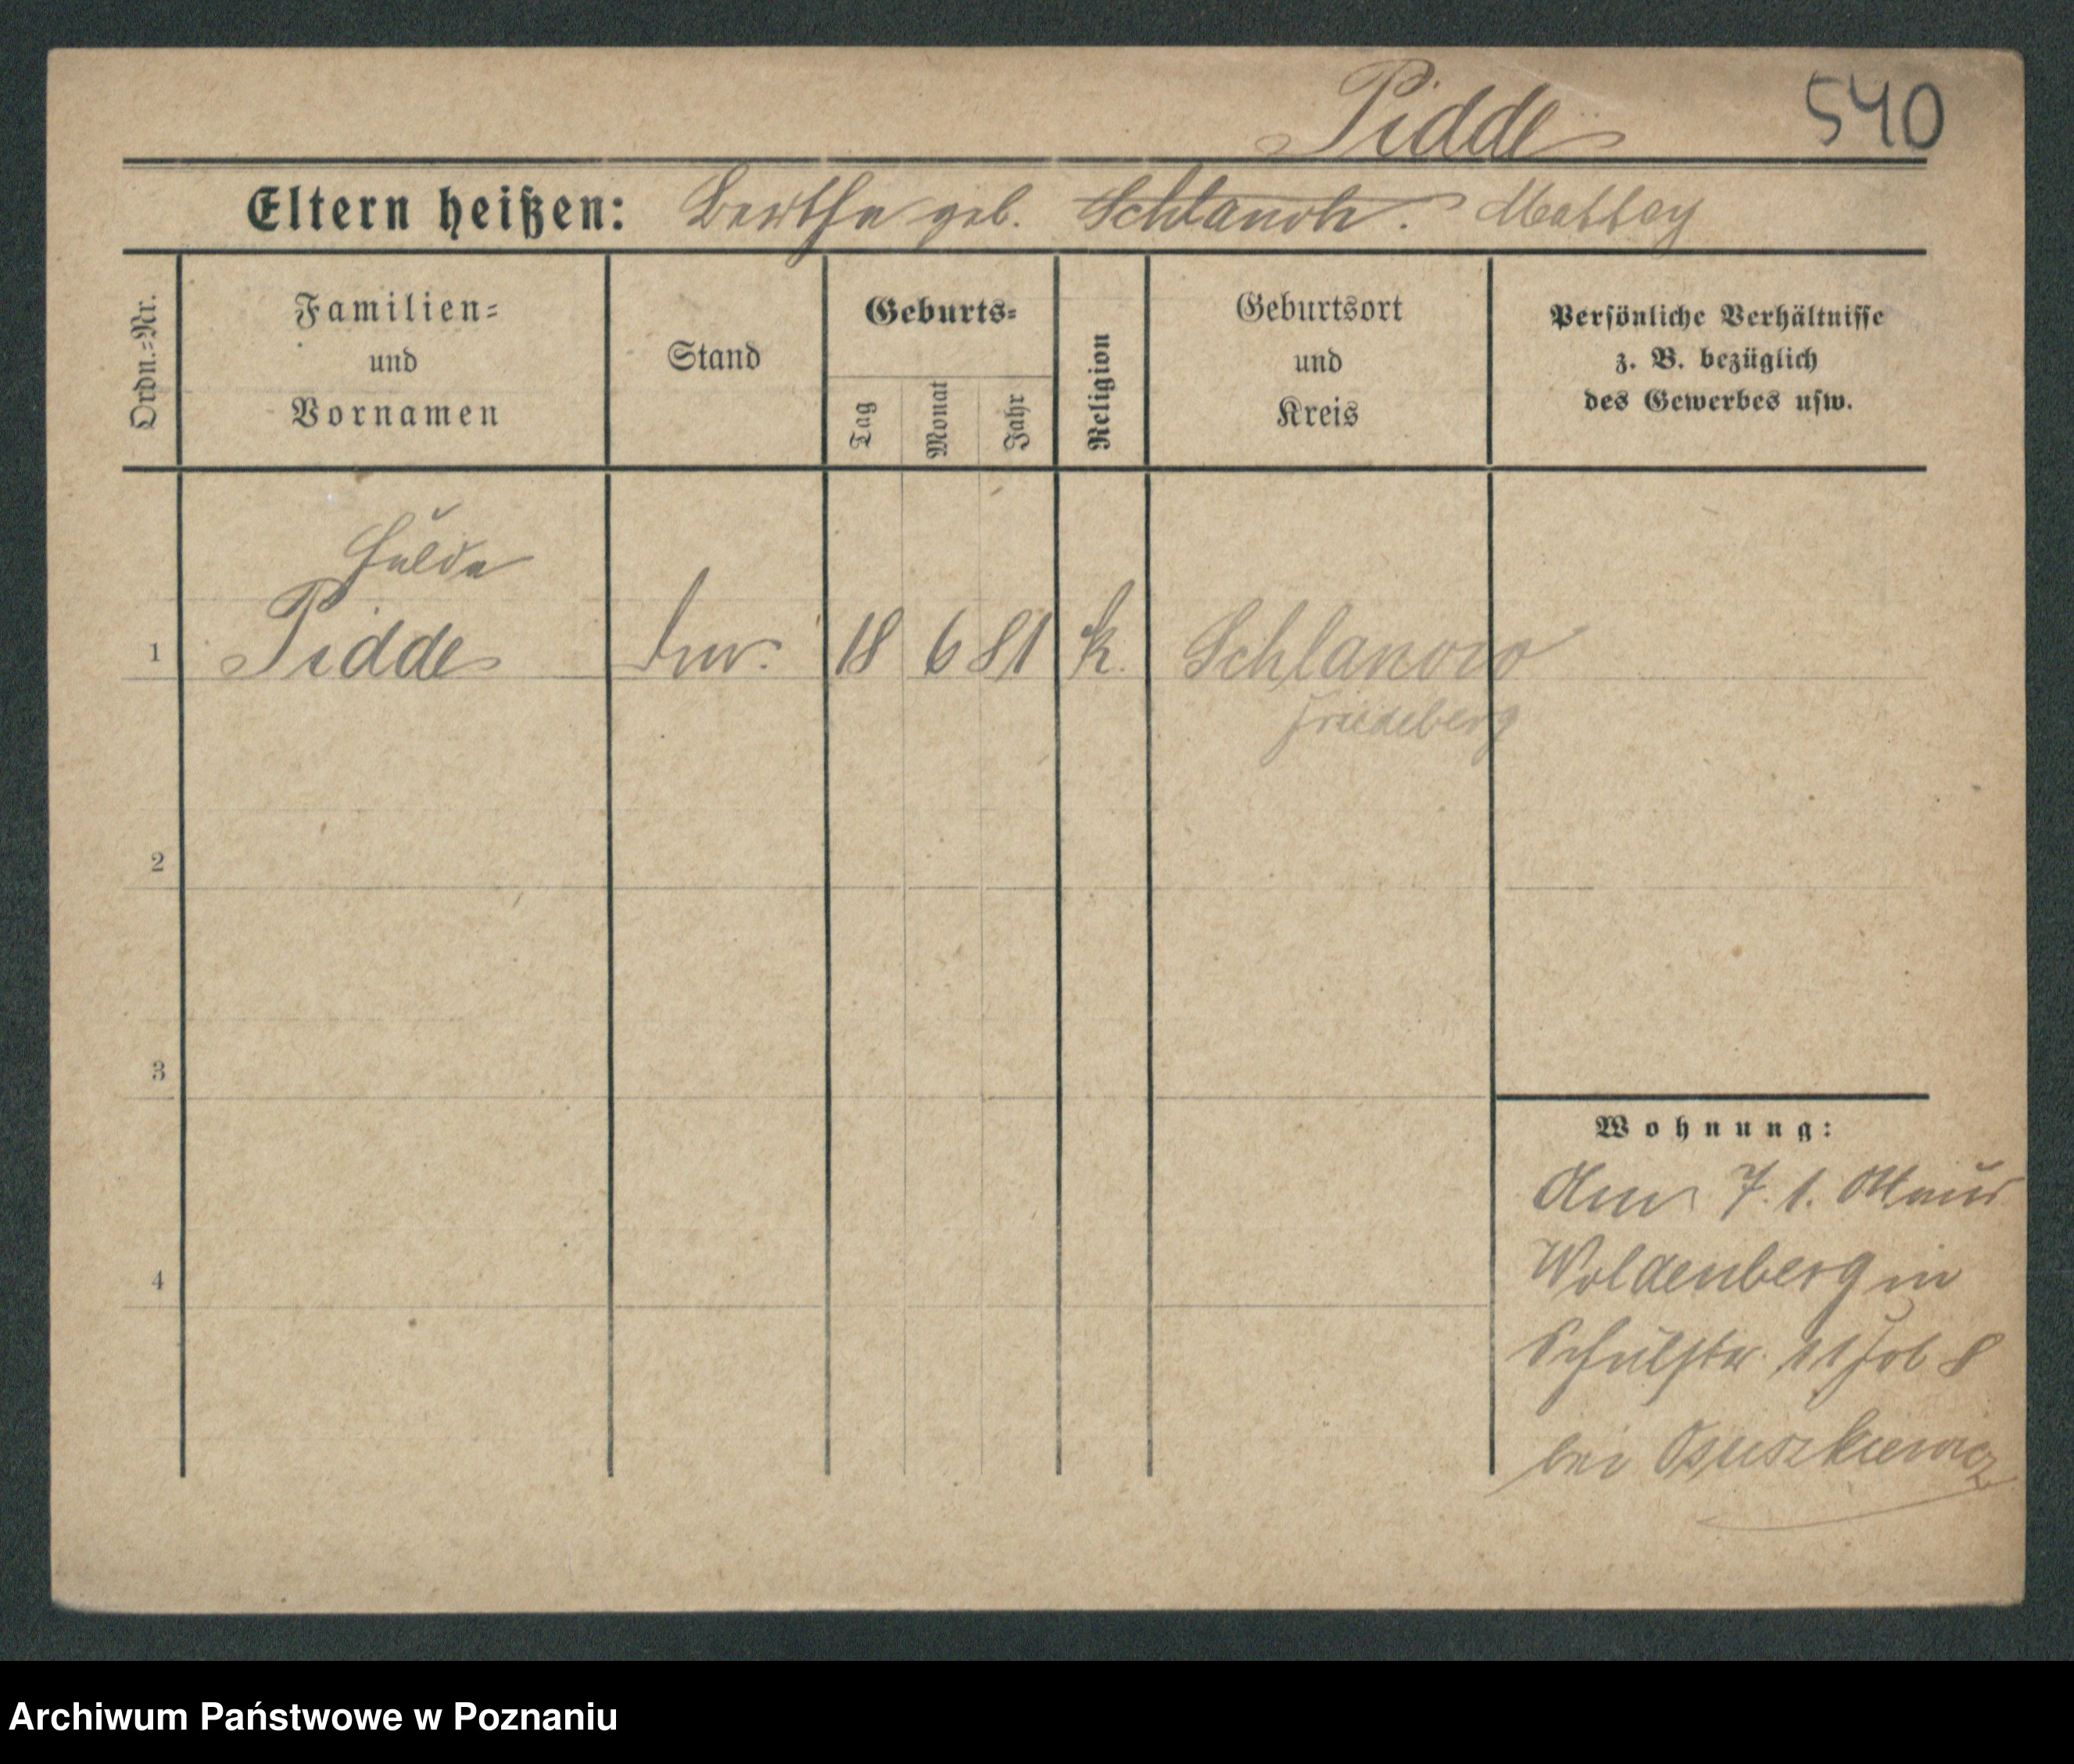 Pidde 540
Eltern heißen: Bertha geb. Schlanoh. Matthey
Ordn.=Nr.
Familien=
und
Vornamen
Stand
Geburts=
Tag Monat Jahr
Religion
Geburtsort
und
Kreis
Persönliche Verhältnisse
z. B. bezüglich
des Gewerbes usw.
Hulda
1 Pidde 18 6 81 k. Schlanow
Friedeberg
2
3
4
Wohnung:
7. 1.
Woldenberg in
Schulstr. 11 8
bei
Archiwum Państwowe w Poznaniu